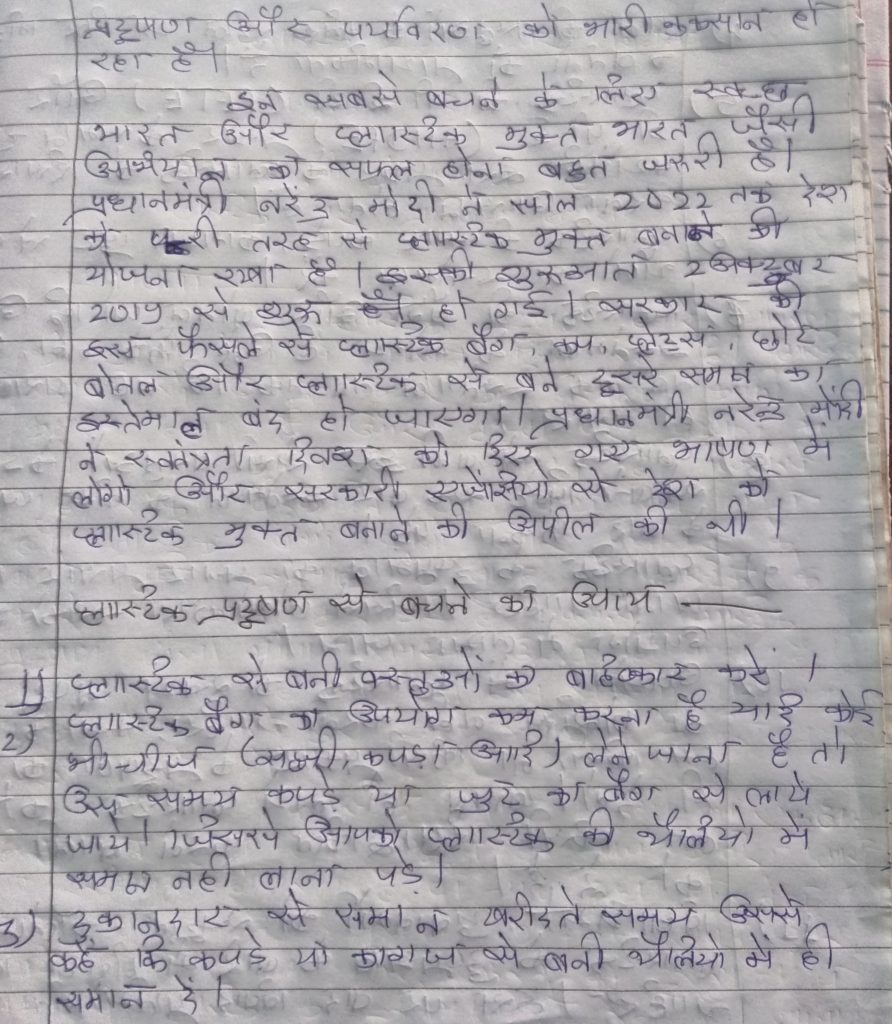 प्रदूषण और पर्यावरण को भारी नुकसान हो
रहा है।
इन सबसे बचने के लिए स्वच्छ
भारत और प्लास्टिक मुक्त भारत जैसी
अभियान को सफल होना बहुत जरुरी है।
प्रधानमंत्री नरेंद्र मोदी ने साल 2022 तक देश
को पूरी तरह से प्लास्टिक मुक्त बनाने की
योजना रखा है। इसकी शुरुआत 2 अक्टूबर
2019 से शुरू हो गई। सरकार की
इस फैसले से प्लास्टिक बैग, कप, प्लेट्स, छोटे
बोतल और प्लास्टिक से बने दूसरे समान का
इस्तेमाल बंद हो जाएगा। प्रधानमंत्री नरेन्द्र मोदी
ने स्वतंत्रता दिवस को दिए गए भाषण में
लोगो और सरकारी एजेंसियो से देश को
प्लास्टिक मुक्त बनाने की अपील की थी।
प्लास्टिक प्रदूषण से बचने का उपाय —
1) प्लास्टिक से बनी वस्तुओं का बहिष्कार करें।
2) प्लास्टिक बैग का उपयोग कम करना है यदि कोई
भी चीज (सब्जी, कपड़ा आदि) लेने जाना है तो
उस समय कपड़े या जुट का बैग से लाये
जाये। जिससे आपको प्लास्टिक की थैलियो में
समान नही लाना पड़े।
3) दुकानदार से समान खरीदते समय उससे
कहे कि कपड़े या कागज से बनी थैलियो में ही
समान दें।